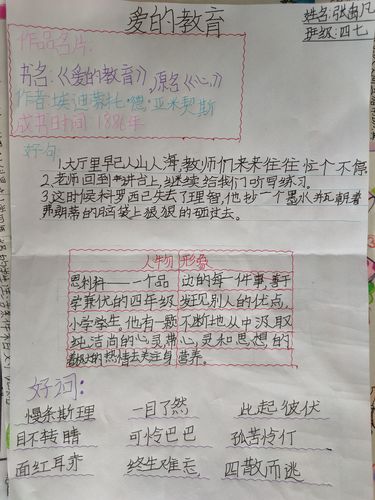 爱的教育
姓名:张雨凡
班级:四七
作品名片:
书名:《爱的教育》,原名《心》
作者:埃迪蒙托·德·亚米契斯
成书时间:1886年
好句:
1.大厅里早已人山人海,教师们来来往往忙个不停
2.老师回到讲台上,继续给我们听写练习。
3.这时候科罗西已失去了理智,他抄一个墨水瓶朝着
弗朗蒂的脑袋上狠狠的砸过去。
人物形象
恩利科——一个品
学兼优的四年级
小学学生。他有一颗
纯洁高尚的心灵,带
着极大的热情去关注身
边的每一件事,善于
发现别人的优点,
不断地从中汲取
心灵和思想的
营养。
好词:
慢条斯理 一目了然 此起彼伏
目不转睛 可怜巴巴 孤苦伶仃
面红耳赤 终生难忘 四散而逃